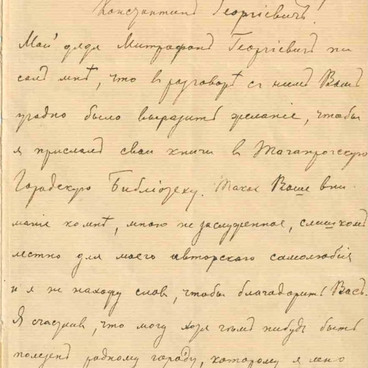 Константинъ Георгіевичъ!
Мой дядя Митрофанъ Георгіевичъ пи
салъ мнѣ, что въ разговорѣ съ нимъ Вамъ
угодно было выразить желаніе, чтобы
я прислалъ свои книги въ Таганрогскую
Городскую Библіотеку. Такое Ваше вни
маніе ко мнѣ, мною не заслуженное, слишкомъ
лестно для моего авторскаго самолюбія
и я не нахожу словъ, чтобы благодарить Васъ.
Я счастливъ, что могу хотя чѣмъ нибудь быть
полезенъ родному городу, которому я мно